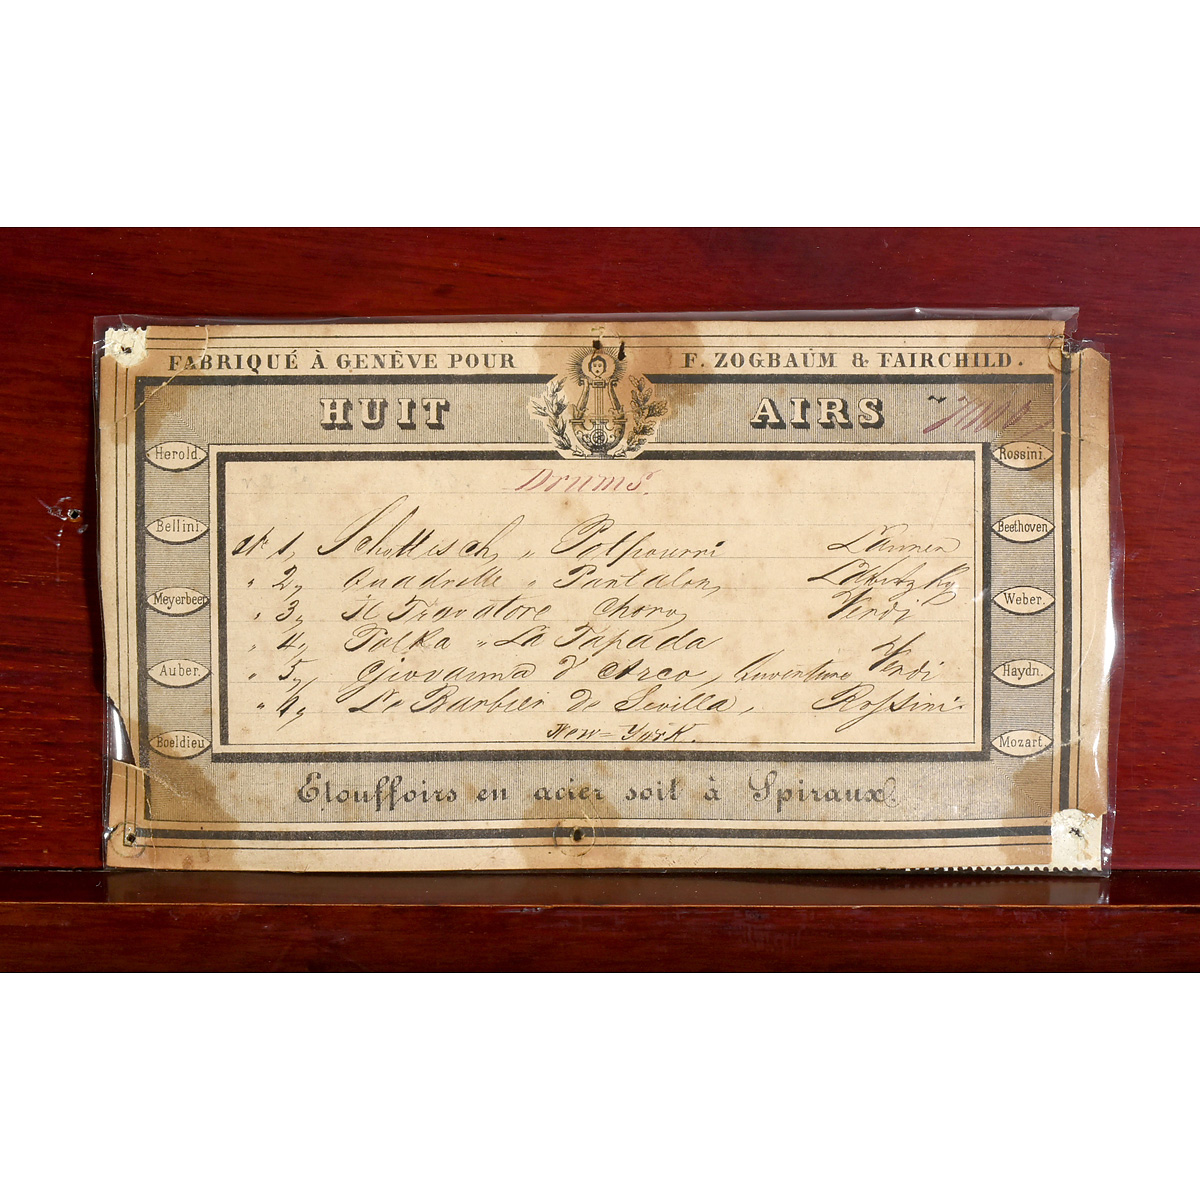 FABRIQUÉ À GENÈVE POUR F. ZOGBAUM & FAIRCHILD.
HUIT AIRS
Herold. Rossini.
Drums.
Bellini. Beethoven
№ 1, Schottisch, " Potpourri Lanner
" 2, Quadrille " Pantalon, Labitzky
Meyerbeer Weber.
" 3, Il Trovatore Choro, Verdi
" 4, Polka " La Tapada
Auber. Haydn.
" 5, Giovanna d'Arco, Verdi
" 4, Le Barbier de Sevilla, Rossini.
New-York.
Boeldieu Mozart.
Etouffoirs en acier soit à Spiraux